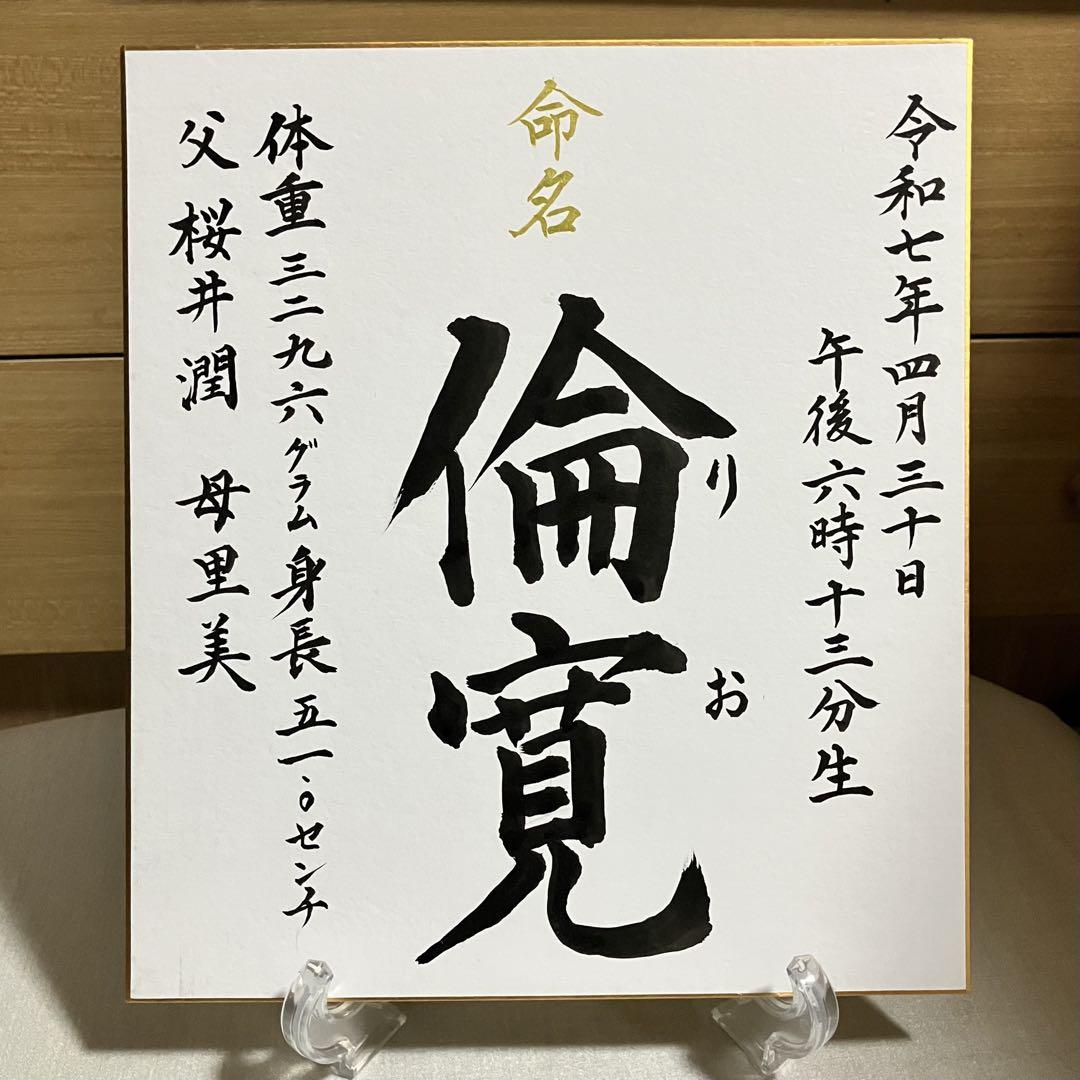 令和七年四月三十日
午後六時十三分生
命名
倫寛
りお
体重三二九六グラム身長五一.0センチ
父 桜井潤 母里美